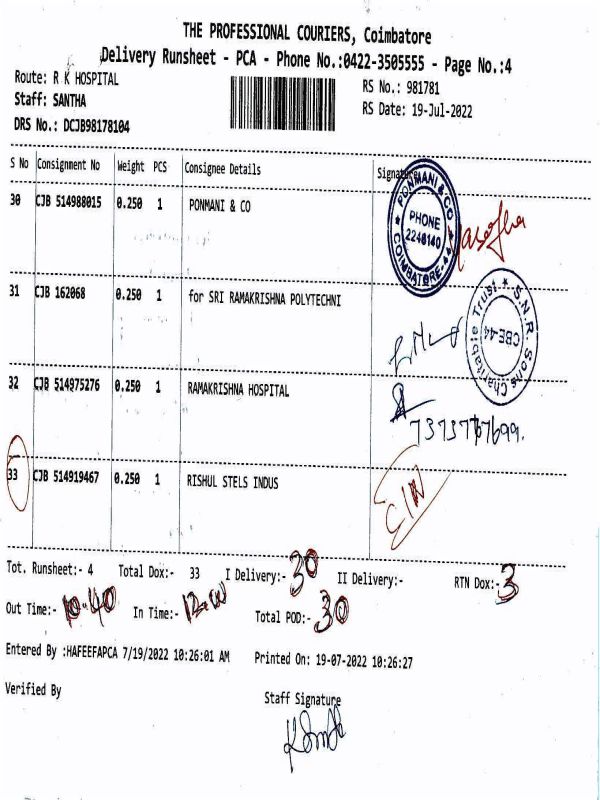 THE PROFESSIONAL COURIERS, Coimbatore
Delivery Runsheet - PCA - Phone No.:0422-3505555 - Page No.:4
Route: R K HOSPITAL
RS No.: 981781
Staff: SANTHA
RS Date: 19-Jul-2022
DRS No.: DCJB98178104
S No Consignment No Weight PCS Consignee Details Signature
30 CJB 514988015 0.250 1 PONMANI & CO
PONMANI & CO
PHONE
2246140
COIMBATORE-44
31 CJB 162068 0.250 1 for SRI RAMAKRISHNA POLYTECHNI
S.N.R. Sons Charitable Trust
CBE-44
32 CJB 514975276 0.250 1 RAMAKRISHNA HOSPITAL
33 CJB 514919467 0.250 1 RISHUL STELS INDUS
Tot. Runsheet:- 4 Total Dox:- 33 I Delivery:- 30 II Delivery:- RTN Dox:- 3
Out Time:- 10.40 In Time:- Total POD:- 30
Entered By :HAFEEFAPCA 7/19/2022 10:26:01 AM Printed On: 19-07-2022 10:26:27
Verified By
Staff Signature